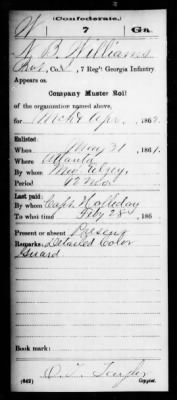 (Confederate.)
W 7 Ga.
W B Williams
Co. , 7 Reg't Georgia Infantry
Appears on
Company Muster Roll
of the organization named above,
for Mch & Apr, 186
Enlisted:
When May 31, 1861.
Where Atlanta
By whom
Period 12 Mos
Last paid:
By whom Capt. Holleday
To what time Feby 28, 186
Present or absent Present
Remarks: Detailed Color
Guard
Book mark:
(642) Copyist.